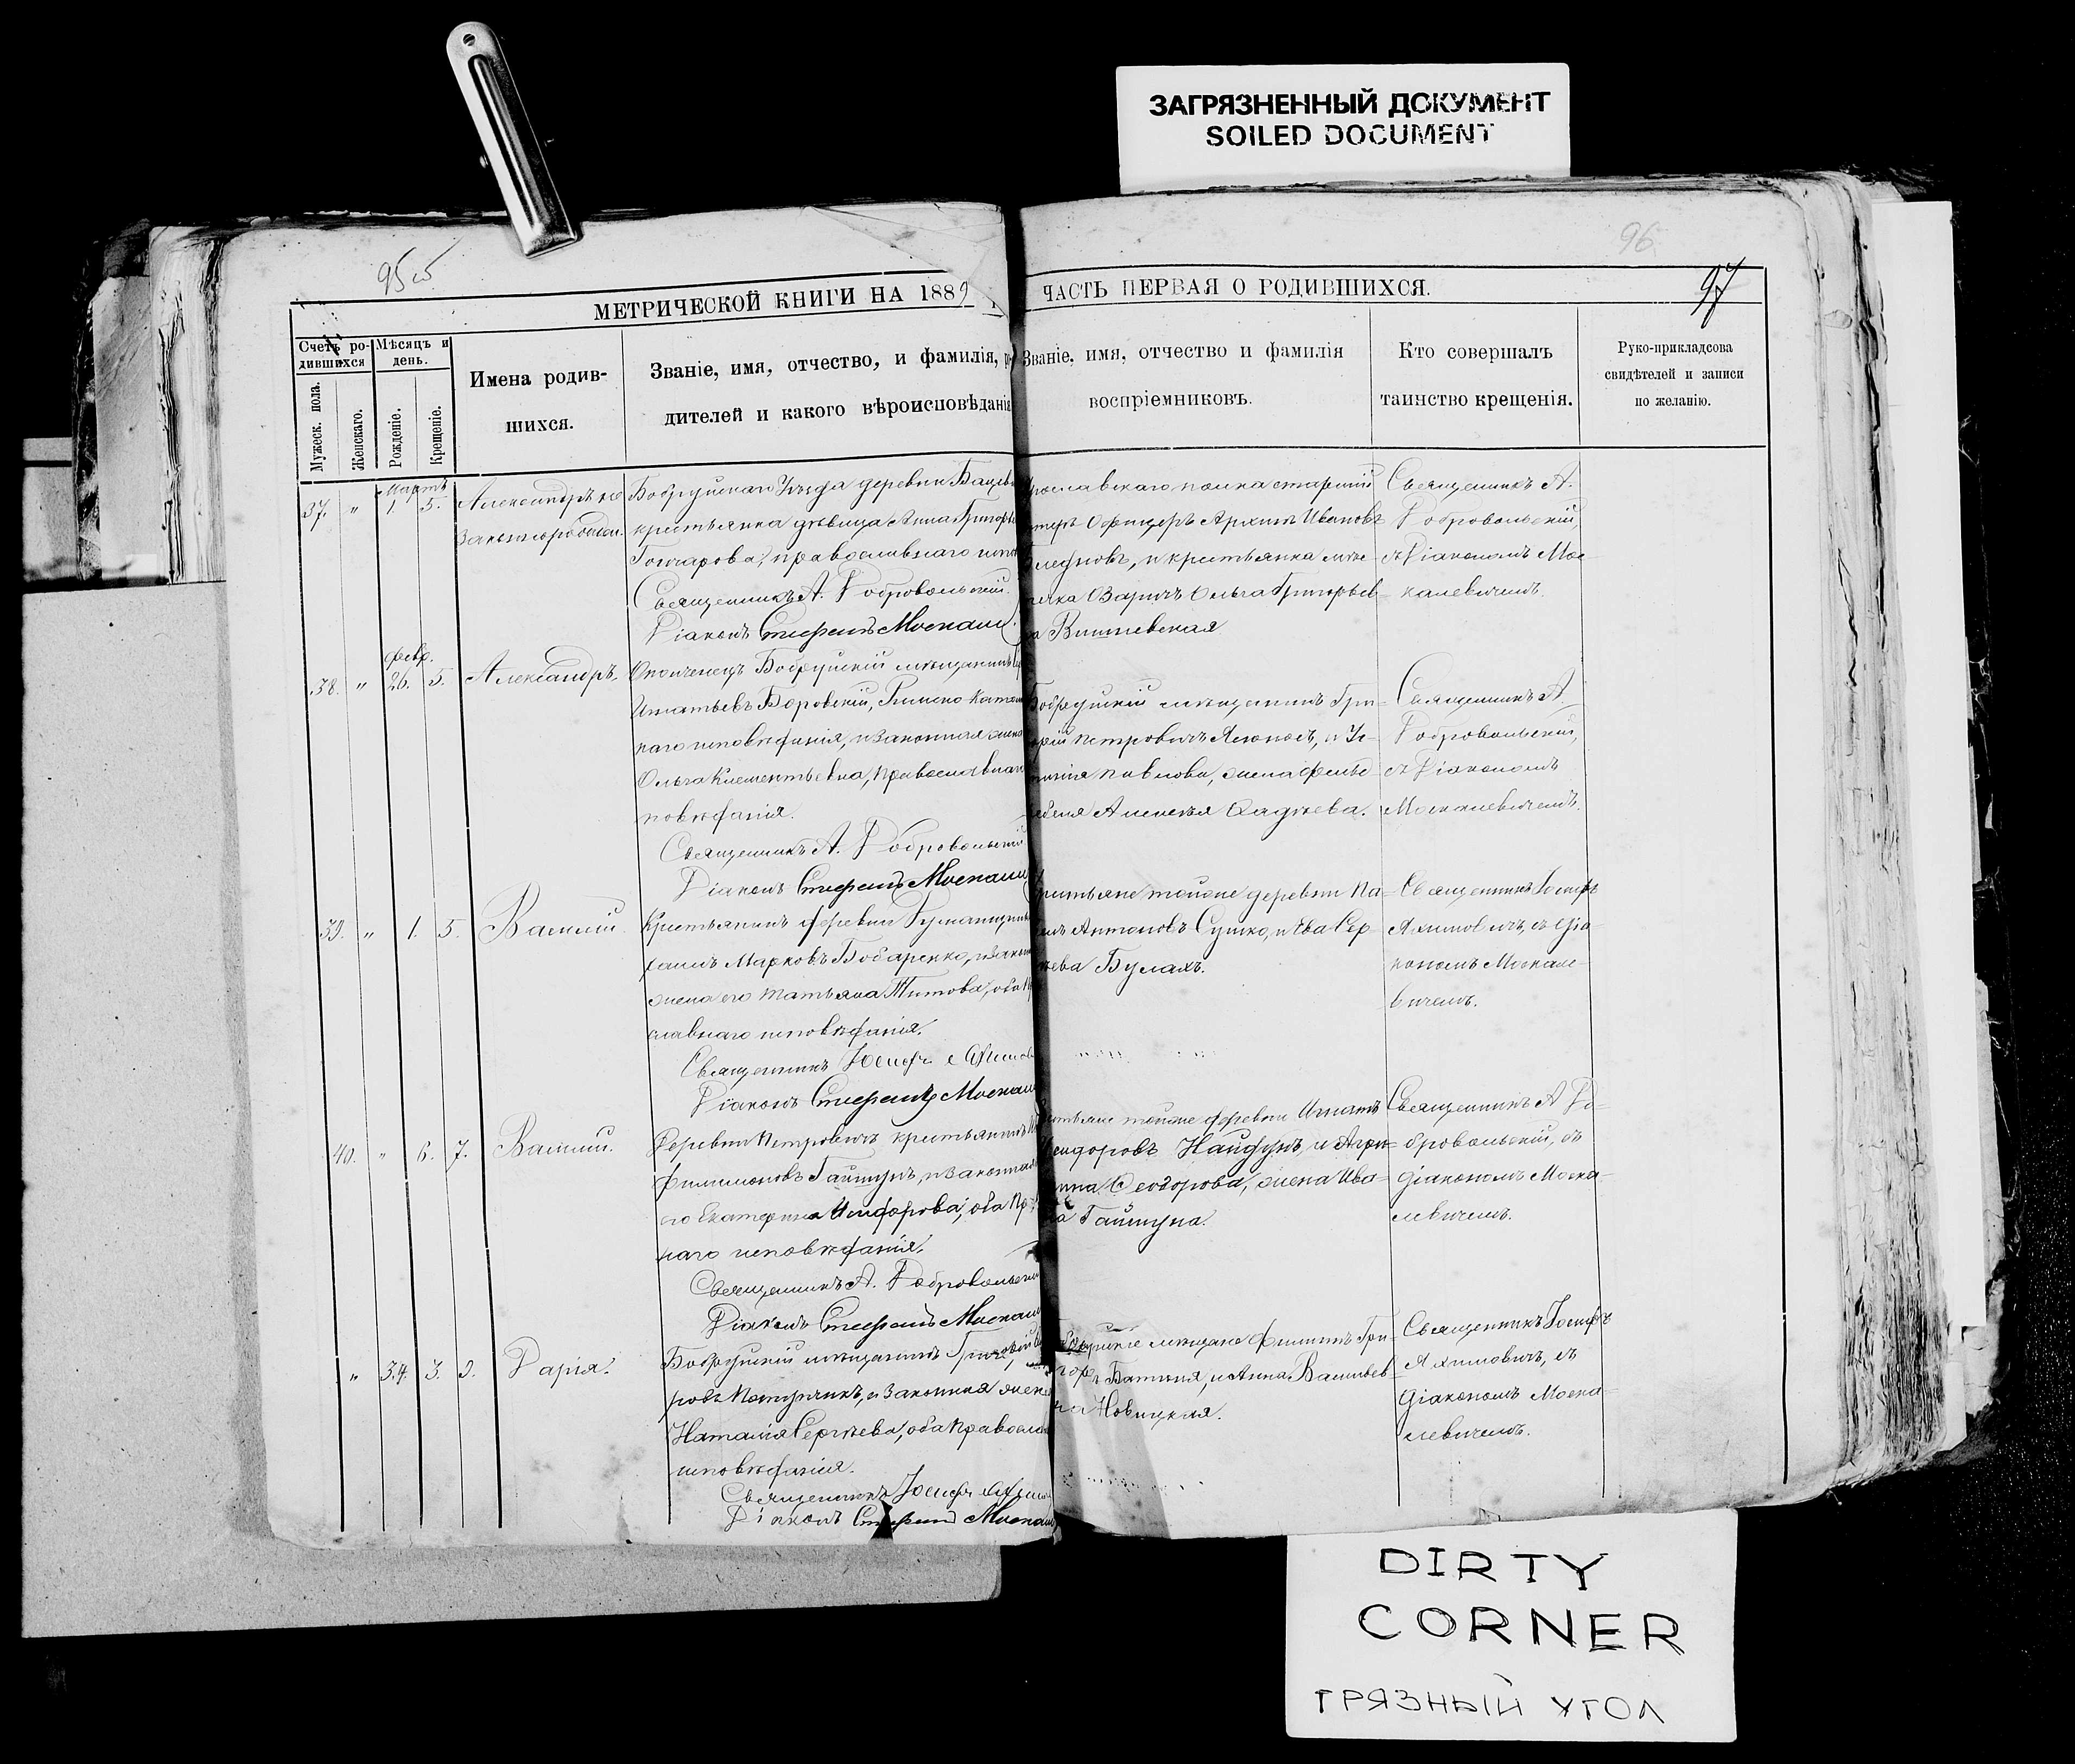 ЗАГРЯЗНЕННЫЙ ДОКУМЕНТ
SOILED DOCUMENT
95об
96
97
МЕТРИЧЕСКОЙ КНИГИ НА 1889
ЧАСТЬ ПЕРВАЯ О РОДИВШИХСЯ.
Счетъ ро-
дившихся
Мужеск. пола.
Женскаго.
Мѣсяцъ и
день.
Рожденіе.
Крещеніе.
Имена родив-
шихся.
Званіе, имя, отчество, и фамилія,
дителей и какого вѣроисповѣданія
Званіе, имя, отчество и фамилія
воспріемниковъ.
Кто совершалъ
таинство крещенія.
Руко-прикладсова
свидѣтелей и записи
по желанію.
Мартъ
37. " 1. 5.
Александръ не
законнорожден.
Бобруйскаго Уѣзда деревни
крестьянка дѣвица Анна
Гончарова, православнаго
Священникъ А. Добровольскій.
Діаконъ Стефанъ
полка старшій
Офицеръ Архипъ Ивановъ
и крестьянка
Ольга Григорьев-
на Вишневская
Священникъ А.
Добровольскій,
съ Діакономъ Мос-
калевичемъ.
февр.
38. " 26. 5.
Александръ.
Бобруйскій мѣщанинъ
Игнатьевъ Боровскій, Римско
каго исповѣданія, и законная жена
Ольга Климентьевна, православнаго
повѣданія.
Священникъ А. Добровольскій
Діаконъ Стефанъ
Бобруйскій мѣщанинъ Гри-
горій Петровичъ и Ус-
тинія Павлова, жена фельд-
Алексѣя
Священникъ А.
Добровольскій,
съ Діакономъ
Москалевичемъ.
39. " 1. 5.
Василій
Крестьянинъ деревни
Марковъ Бобаренко,
жена его Татьяна Титова, оба
славнаго исповѣданія.
Священникъ Іосифъ
Діаконъ Стефанъ
тойже деревни Па-
Антоновъ Сушко, и Ева Сер-
гѣева Булахъ.
Священникъ Іосифъ
Яхимовичъ, съ діа-
кономъ Москале-
вичемъ.
40. " 6. 7.
Василій.
Деревни Петровичъ крестьянинъ
Филимоновъ Гайшунъ, и законная
его Екатерина Исидорова, оба
наго исповѣданія.
Священникъ А. Добровольскій
Діаконъ Стефанъ
тойже деревни Игнатъ
Исидоровъ Найдунъ, и Агри-
пина Ѳеодорова, жена Ива-
на Гайшуна.
Священникъ А До-
бровольскій, съ
діакономъ Моска-
левичемъ.
" 34. 3. 9.
Дарія.
Бобруйскій мѣщанинъ Григорій
ровъ и законная жена
Наталія Сергѣева, оба Правосла
исповѣданія.
Священникъ Іосифъ
Діаконъ Стефанъ
мѣщане Филиппъ Гри-
и Анна Васильев-
на Новицкая.
Священникъ Іосифъ
Яхимовичъ, съ
діакономъ Моска-
левичемъ.
DIRTY
CORNER
ГРЯЗНЫЙ УГОЛ